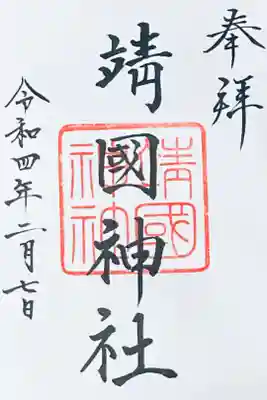 奉拝
靖國神社
靖國
神社
令和四年二月七日